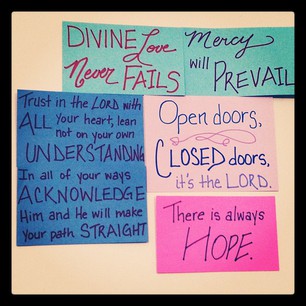 DIVINE Love
Never FAILS
Mercy
will
PREVAIL
Trust in the LORD with
ALL your heart; lean
not on your own
UNDERSTANDING
In all of your ways
ACKNOWLEDGE
Him and He will make
your path STRAIGHT
Open doors,
CLOSED doors,
it's the LORD.
There is always
HOPE.